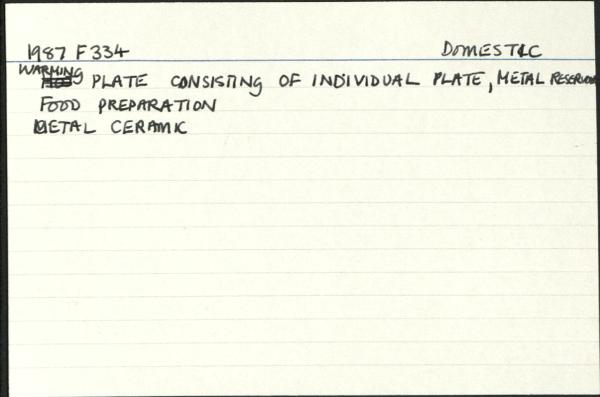 1987 F 334 DOMESTIC
WARMING
PLATE CONSISTING OF INDIVIDUAL PLATE, METAL RESERVOIR
FOOD PREPARATION
METAL CERAMIC